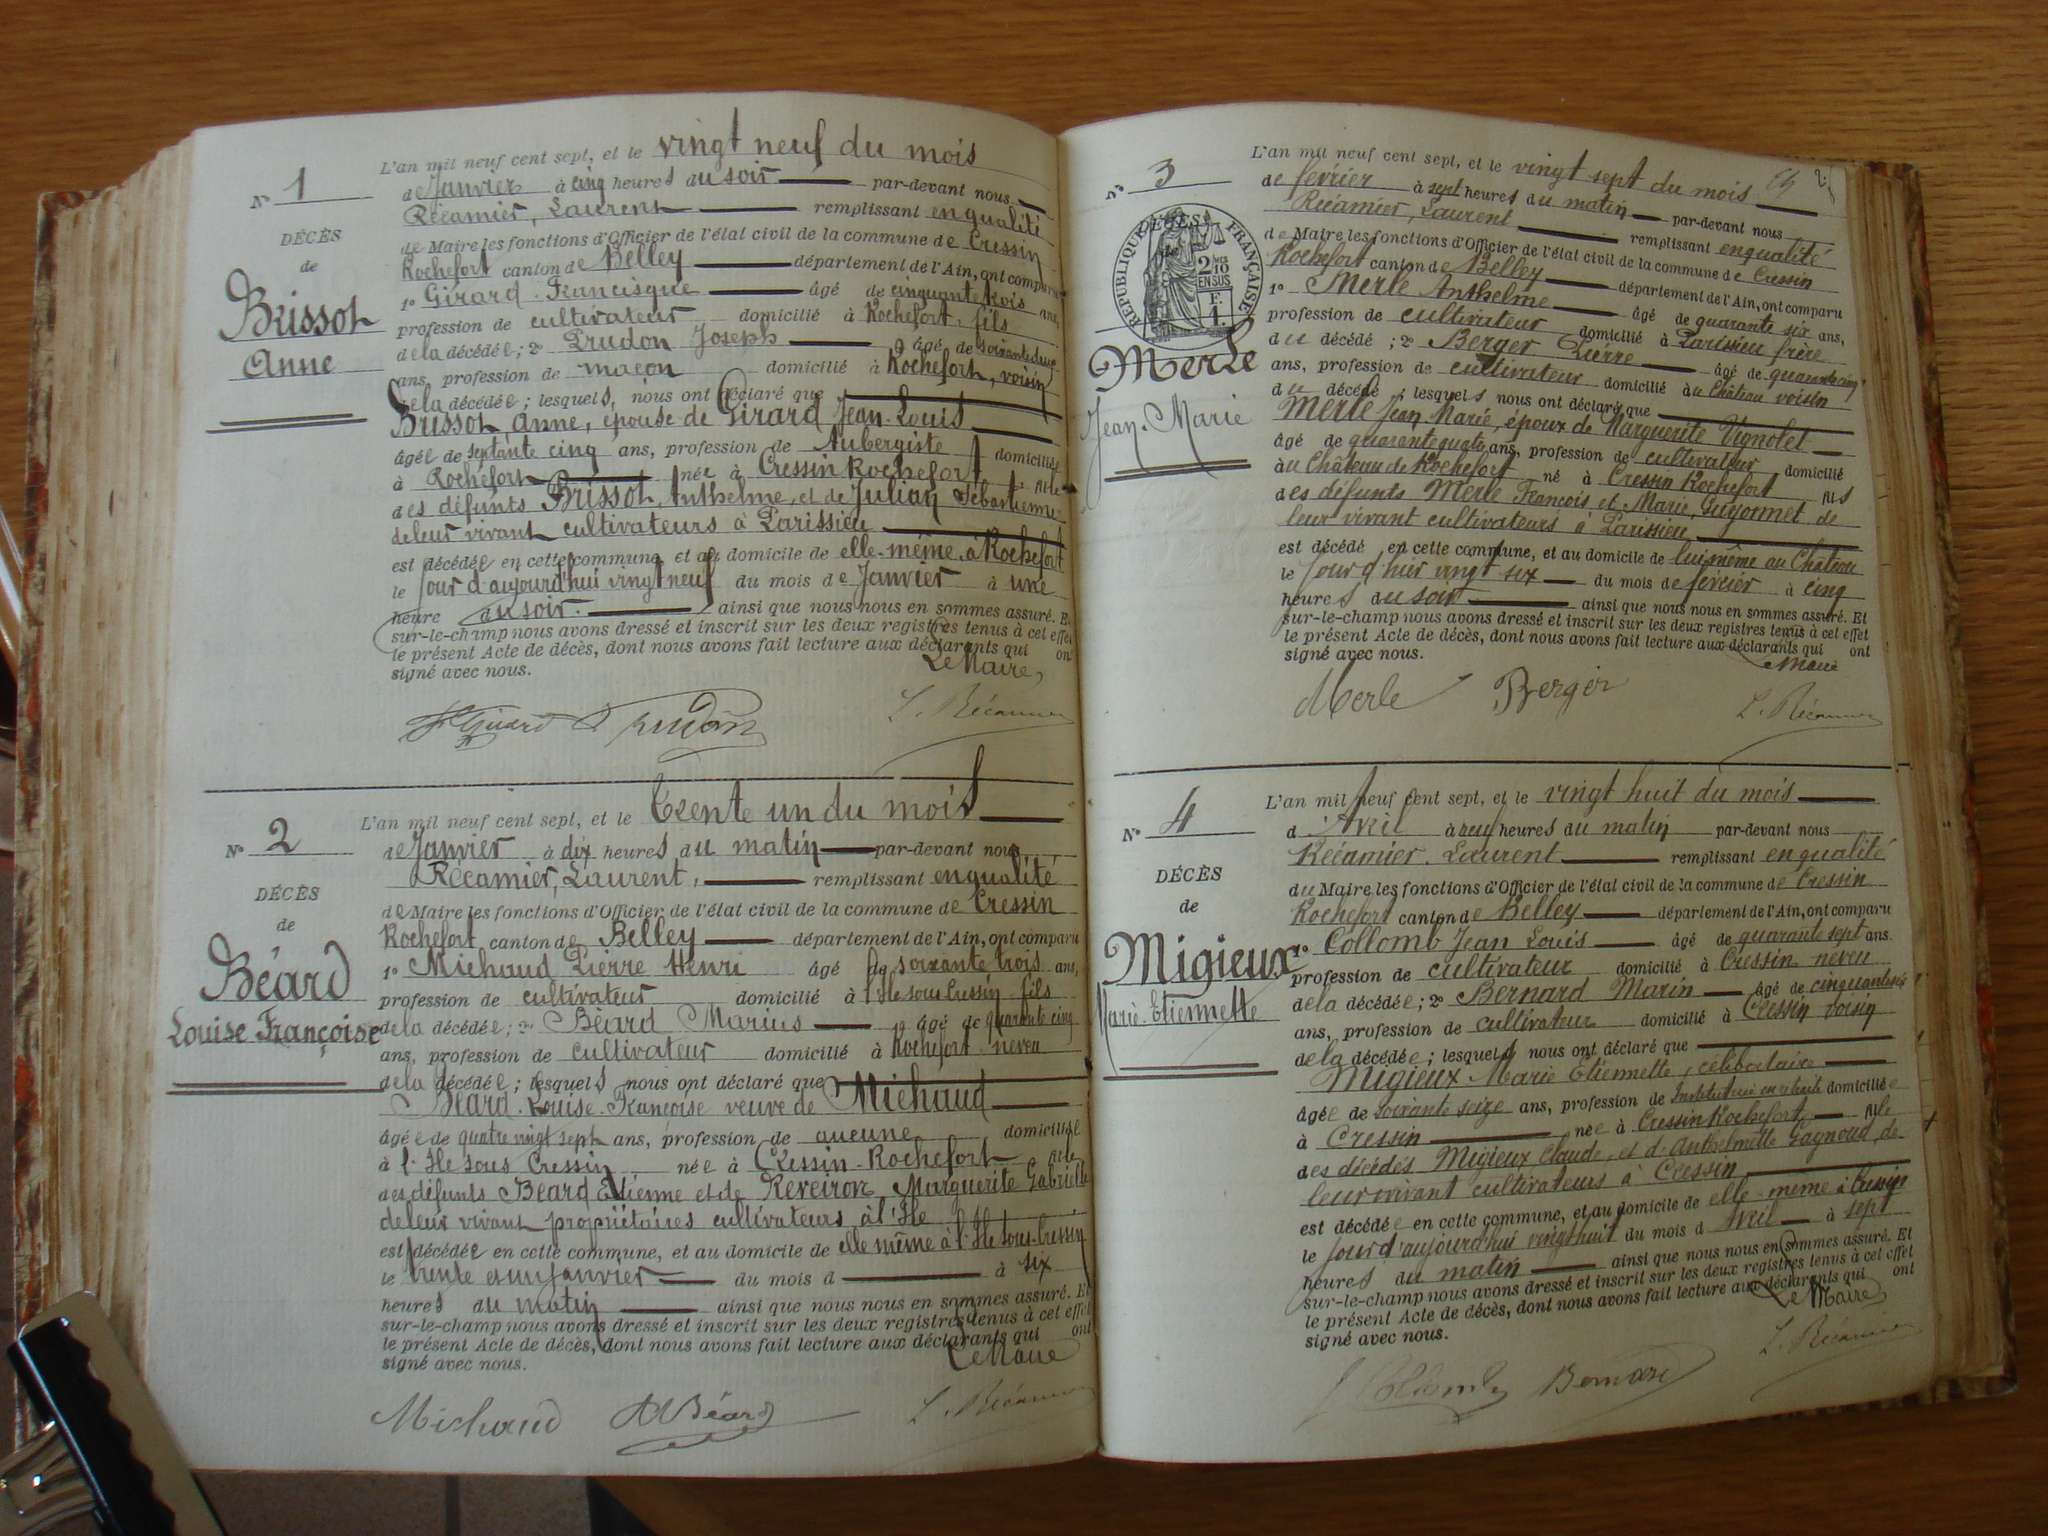 N° 1
DÉCÈS
de
Brissot
Anne
L'an mil neuf cent sept, et le vingt neuf du mois
de Janvier à cinq heures du soir par-devant nous
Récamier, Laurent remplissant en qualité
de Maire les fonctions d'Officier de l'état civil de la commune de Cressin
Rochefort canton de Belley département de l'Ain, ont comparu
1° Girard Francisque âgé de cinquante trois ans,
profession de cultivateur domicilié à Rochefort, fils
de la décédée ; 2° Prudon Joseph âgé de soixante deux
ans, profession de maçon domicilié à Rochefort, voisin
de la décédée ; lesquels, nous ont déclaré que
Brissot Anne, épouse de Girard Jean-Louis
âgée de septante cinq ans, profession de Aubergiste domiciliée
à Rochefort née à Cressin Rochefort fille
des défunts Brissot Anthelme, et de Julian Sébastienne
de leur vivant cultivateurs à Parissieu
est décédée en cette commune, et au domicile de elle-même à Rochefort
le jour d'aujourd'hui vingt neuf du mois de Janvier à une
heure du soir. ainsi que nous nous en sommes assuré. Et
sur-le-champ nous avons dressé et inscrit sur les deux registres tenus à cet effet
le présent Acte de décès, dont nous avons fait lecture aux déclarants qui ont
signé avec nous.
Le Maire,
Girard Prudon L. Récamier
N° 2
DÉCÈS
de
Béard
Louise Françoise
L'an mil neuf cent sept, et le Trente un du mois
de Janvier à dix heures du matin par-devant nous
Récamier, Laurent, remplissant en qualité
de Maire les fonctions d'Officier de l'état civil de la commune de Cressin
Rochefort canton de Belley département de l'Ain, ont comparu
1° Michaud Pierre Henri âgé de soixante trois ans,
profession de cultivateur domicilié à l'Ile sous Cressin fils
de la décédée ; 2° Béard Marius âgé de quarante cinq
ans, profession de cultivateur domicilié à Rochefort neveu
de la décédée ; lesquels nous ont déclaré que
Béard Louise Françoise veuve de Michaud
âgée de quatre vingt sept ans, profession de aucune domiciliée
à l'Ile sous Cressin née à Cressin-Rochefort fille
des défunts Béard Etienne et de Reveiron Marguerite Gabrielle
de leur vivant propriétaires cultivateurs à l'Ile
est décédée en cette commune, et au domicile de elle même à l'Ile sous-Cressin
le trente et un janvier du mois d à six
heures du matin ainsi que nous nous en sommes assuré. Et
sur-le-champ nous avons dressé et inscrit sur les deux registres tenus à cet effet
le présent Acte de décès, dont nous avons fait lecture aux déclarants qui ont
signé avec nous.
Le Maire
Michaud Béard L. Récamier
N° 3
RÉPUBLIQUE FRANÇAISE
2/10
EN SUS
Merle
Jean-Marie
L'an mil neuf cent sept, et le vingt sept du mois
de février à sept heures du matin par-devant nous
Récamier, Laurent remplissant en qualité
de Maire les fonctions d'Officier de l'état civil de la commune de Cressin
Rochefort canton de Belley département de l'Ain, ont comparu
1° Merle Anthelme âgé de quarante six ans,
profession de cultivateur domicilié à Parissieu frère
du décédé ; 2° Berger Pierre âgé de quarante cinq
ans, profession de cultivateur domicilié au Château voisin
du décédé ; lesquels nous ont déclaré que
Merle Jean Marie, époux de Marguerite Vignolet
âgé de quarante quatre ans, profession de cultivateur domicilié
au Château de Rochefort né à Cressin Rochefort fils
des défunts Merle François et Marie Guyonnet de
leur vivant cultivateurs à Parissieu
est décédé en cette commune, et au domicile de lui même au Château
le jour d'hier vingt six du mois de février à cinq
heures du soir ainsi que nous nous en sommes assuré. Et
sur-le-champ nous avons dressé et inscrit sur les deux registres tenus à cet effet
le présent Acte de décès, dont nous avons fait lecture aux déclarants qui ont
signé avec nous.
Le Maire
Merle Berger L. Récamier
N° 4
DÉCÈS
de
Migieux
Marie-Etiennette
L'an mil neuf cent sept, et le vingt huit du mois
d'Avril à neuf heures du matin par-devant nous
Récamier. Laurent remplissant en qualité
du Maire les fonctions d'Officier de l'état civil de la commune de Cressin
Rochefort canton de Belley département de l'Ain, ont comparu
1° Collomb Jean Louis âgé de quarante sept ans.
profession de cultivateur domicilié à Cressin neveu
de la décédée ; 2° Bernard Marin âgé de
ans, profession de cultivateur domicilié à Cressin voisin
de la décédée ; lesquels nous ont déclaré que
Migieux Marie Etiennette, célibataire
âgée de soixante seize ans, profession de Institutrice en retraite domiciliée
à Cressin née à Cressin Rochefort fille
des décédés Migieux Claude, et d'Anthelmette Gagnoud de
leur vivant cultivateurs à Cressin
est décédée en cette commune, et au domicile de elle-même à Cressin
le jour d'aujourd'hui vingt huit du mois d'Avril à sept
heures du matin ainsi que nous nous en sommes assuré. Et
sur-le-champ nous avons dressé et inscrit sur les deux registres tenus à cet effet
le présent Acte de décès, dont nous avons fait lecture aux déclarants qui ont
signé avec nous.
Le Maire
Collomb Bernard L. Récamier